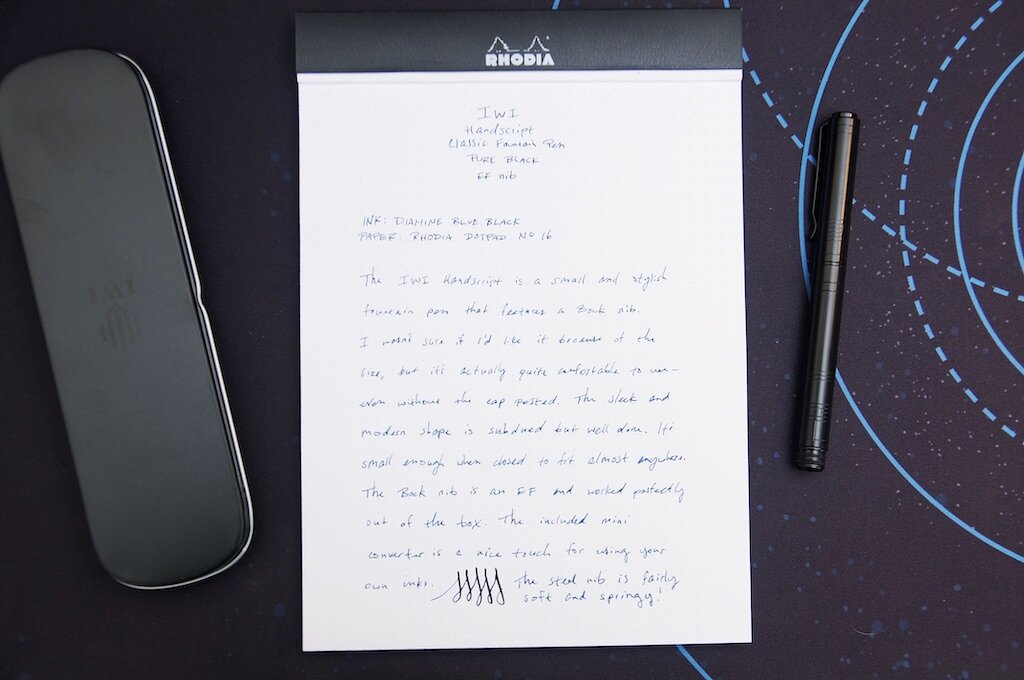 RHODIA
IWI
IWI
Handscript
Classic Fountain Pen
PURE BLACK
EF nib
INK: DIAMINE BLUE BLACK
PAPER: RHODIA DOTPAD No 16
The IWI Handscript is a small and stylish
fountain pen that features a Bock nib.
I wasn't sure if I'd like it because of the
size, but it's actually quite comfortable to use—
even without the cap posted. The sleek and
modern shape is subdued but well done. It's
small enough when closed to fit almost anywhere.
The Bock nib is an EF and worked perfectly
out of the box. The included mini
converter is a nice touch for using your
own inks. The steel nib is fairly
soft and springy!